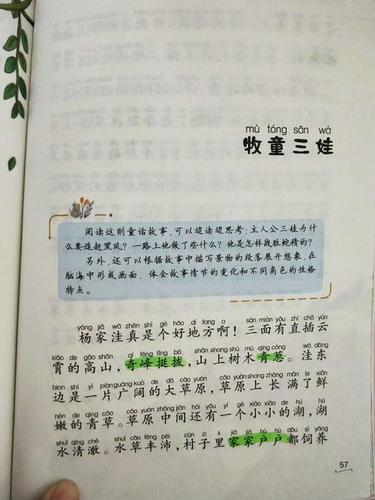 mù tóng sān wá
牧童三娃
阅读这则童话故事，可以边读边思考：主人公三娃为什
么要追赶黑风？一路上他做了些什么？他是怎样战胜蛇精的？
另外，还可以根据故事中描写景物的段落展开想象，在
脑海中形成画面，体会故事情节的变化和不同角色的性格
特点。
yáng jiā wā zhēn shì gè hǎo dì fang a sān miàn yǒu zhí chā yún
杨家洼真是个好地方啊！三面有直插云
xiāo de gāo shān qí fēng tǐng bá shān shang shù mù qīng cōng wā dōng
霄的高山，奇峰挺拔，山上树木青葱。洼东
biān shì yí piàn guǎng kuò de dà cǎo yuán cǎo yuán shang zhǎng mǎn le xiān
边是一片广阔的大草原，草原上长满了鲜
nèn de qīng cǎo cǎo yuán zhōng jiān hái yǒu yí gè xiǎo xiǎo de hú hú
嫩的青草。草原中间还有一个小小的湖，湖
shuǐ qīng chè shuǐ cǎo fēng pèi cūn zi li jiā jiā hù hù dōu sì yǎng
水清澈。水草丰沛，村子里家家户户都饲养
57